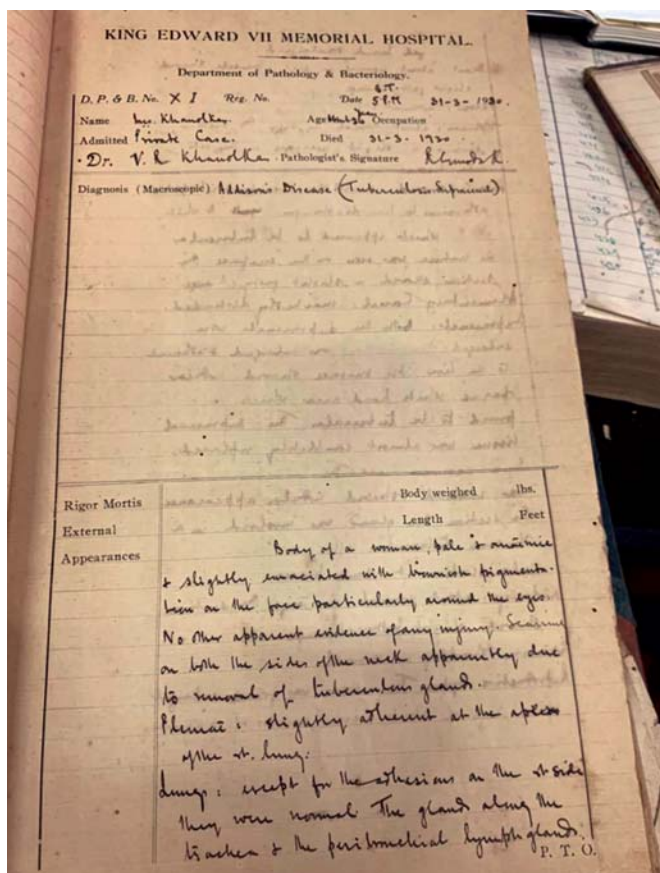 KING EDWARD VII MEMORIAL HOSPITAL.
Department of Pathology & Bacteriology.
D. P. & B. No. X I Reg. No. Date 5 P.M 31-3-1930.
Name Mrs. Khanolkar. Age Occupation
Admitted Private Case. Died 31-3-1930
Dr. V. R Khanolkar Pathologist's Signature
Diagnosis (Macroscopic) Addison's Disease (Tuberculosis Suprarenal)
Rigor Mortis Body weighed lbs.
External Length Feet
Appearances
Body of a woman, pale & anaemic
& slightly emaciated with brownish pigmenta-
tion on the face particularly around the eyes.
No other apparent evidence of any injury. Scanning
on both the sides of the neck apparently due
to removal of tuberculous glands.
Pleurae : slightly adherent at the apex
of the rt. lung.
Lungs : except for the adhesions on the rt side
they were normal. The glands along the
trachea & the peribronchial lymph glands.
P. T. O.